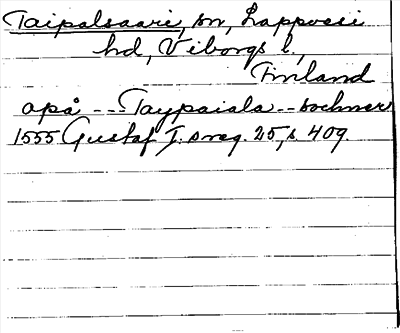 Taipalsaari, sn, Lappvesi
hd, Viborgs l.,
Finland
opå --- Taypaiala -- sochnar
1555 Gustaf I:s reg. 25, s. 409.